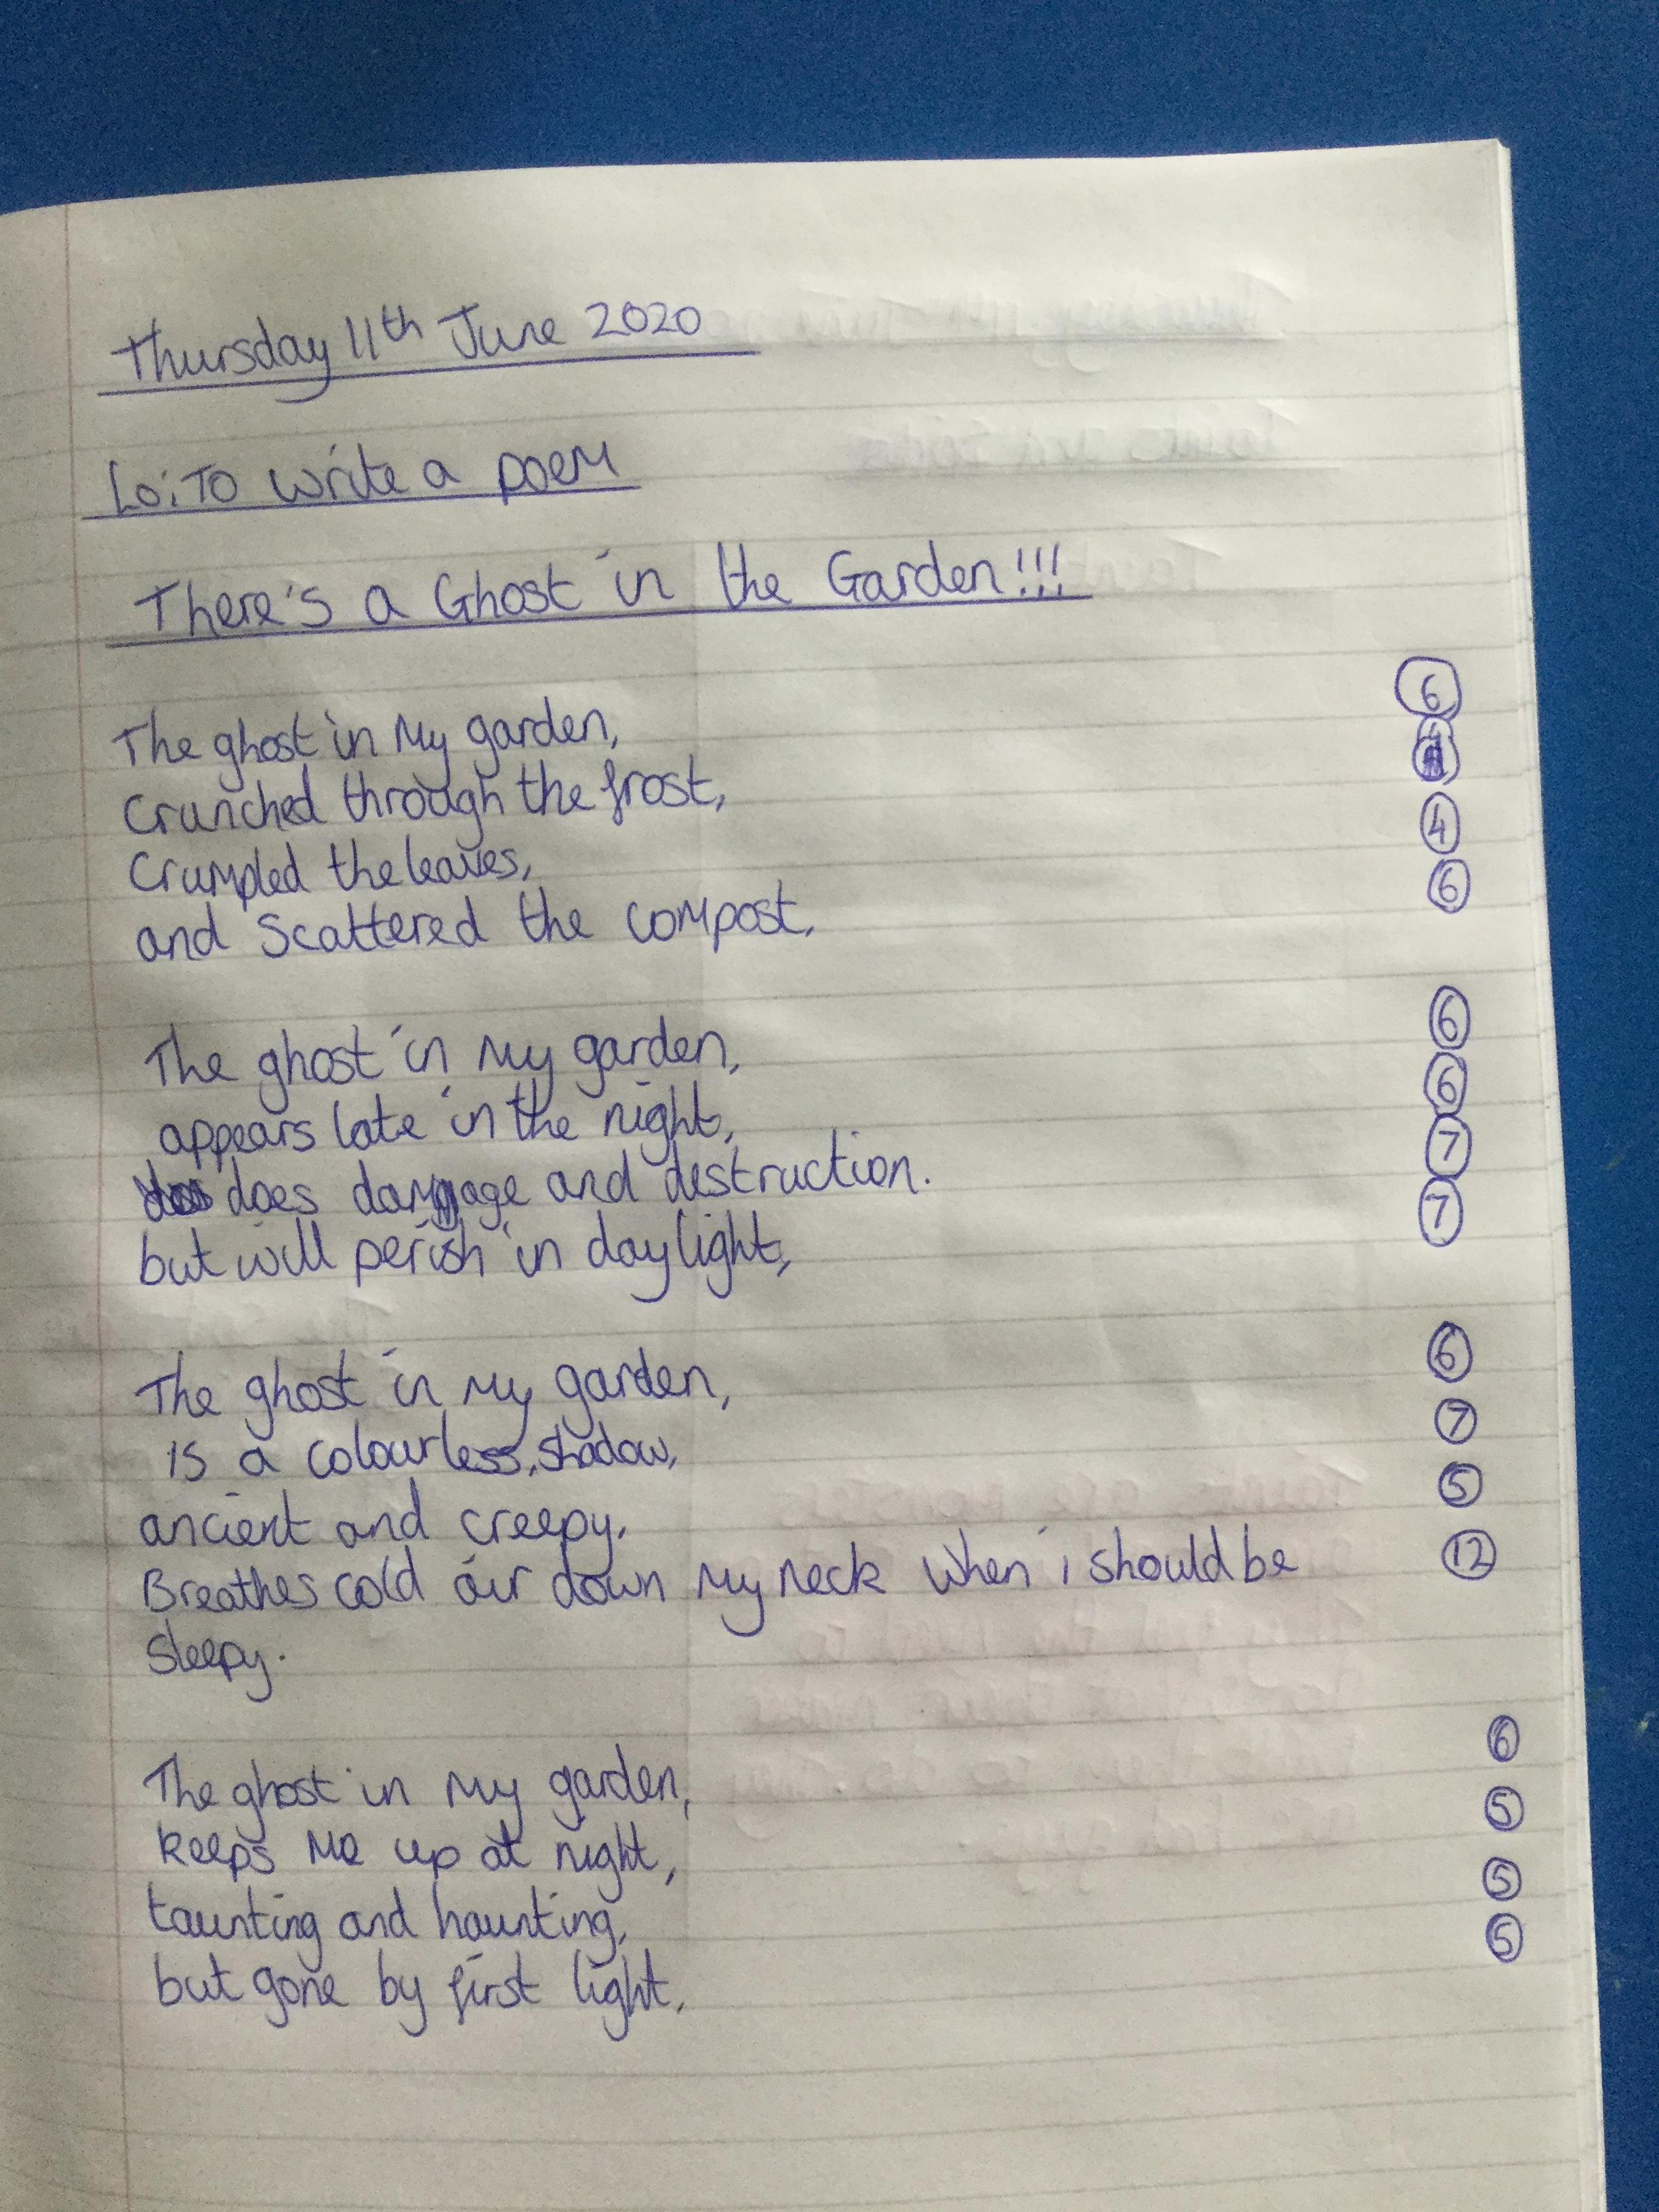 Thursday 11th June 2020
Lo: To write a poem
There's a Ghost in the Garden!!!
The ghost in my garden, 6
Crunched through the frost, 4
Crumpled the leaves, 4
and scattered the compost. 6
The ghost in my garden, 6
appears late in the night, 6
does damage and destruction. 7
but will perish in daylight, 7
The ghost in my garden, 6
is a colourless, shadow, 7
ancient and creepy. 5
Breathes cold air down my neck when i should be 12
sleepy.
The ghost in my garden, 6
keeps me up at night, 5
taunting and haunting, 5
but gone by first light. 5